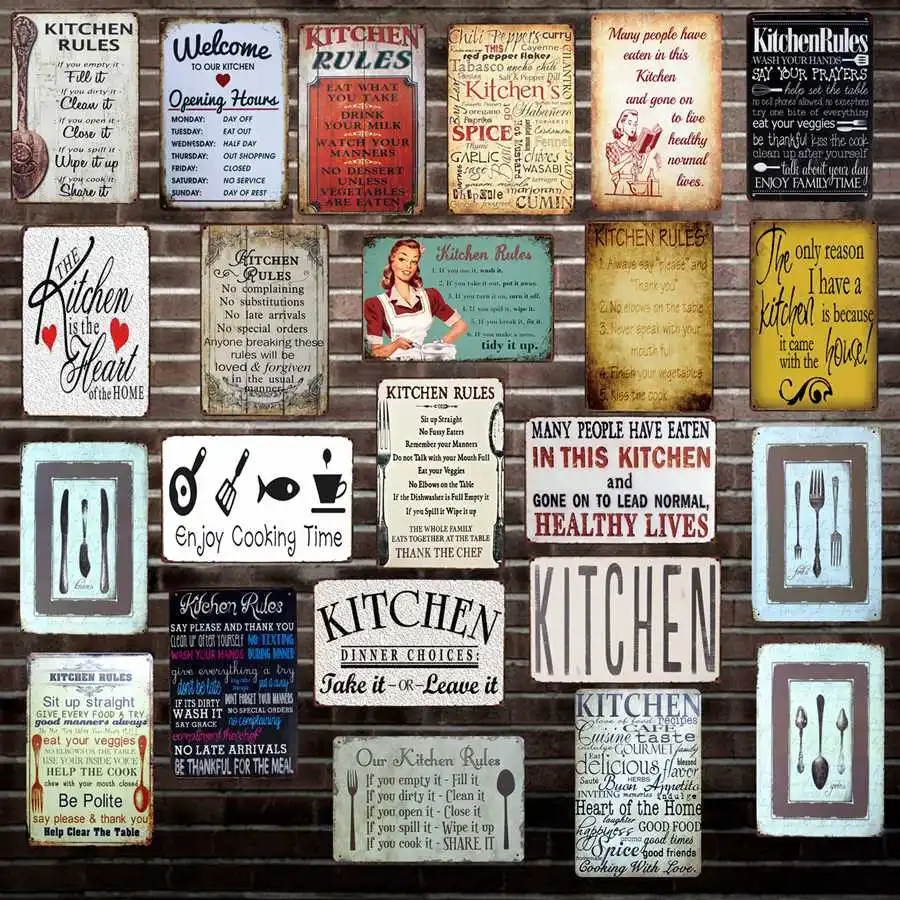 KITCHEN
RULES
If you empty it
Fill it
If you dirty it
Clean it
If you open it
Close it
If you spill it
Wipe it up
If you cook it
Share it
Welcome
TO OUR KITCHEN
Opening Hours
MONDAY: DAY OFF
TUESDAY: EAT OUT
WEDNESDAY: HALF DAY
THURSDAY: OUT SHOPPING
FRIDAY: CLOSED
SATURDAY: NO SERVICE
SUNDAY: DAY OF REST
KITCHEN
RULES
EAT WHAT
YOU TAKE
DRINK
YOUR MILK
WATCH YOUR
MANNERS
NO DESSERT
UNLESS
VEGETABLES
ARE EATEN
Chili Peppers curry
THIS Cayenne
red pepper flakes
Tabasco ancho chili
Salt & Pepper Dill
Kitchen's
Habanero
oregano
Paprika
SPICE
Thyme
GARLIC
Fennel
chives
WASABI
Chipotle
marjoram
CUMIN
CILANTRO
Many people have
eaten in this
Kitchen
and gone on
to live
healthy
normal
lives.
KitchenRules
WASH YOUR HANDS
SAY YOUR PRAYERS
help set the table
no cell phones allowed, no exceptions
try one bite of everything
eat your veggies
be thankful kiss the cook
clean up after yourself
talk about your day
ENJOY FAMILY TIME
THE
Kitchen
is the
Heart
of the HOME
KITCHEN
RULES
No complaining
No substitutions
No late arrivals
No special orders
Anyone breaking these
rules will be
loved & forgiven
in the usual
manner
Kitchen Rules
1. If you use it, wash it.
2. If you take it out, put it away.
3. If you turn it on, turn it off.
4. If you spill it, wipe it.
5. If you break it, fix it.
6. If you make a mess,
tidy it up.
KITCHEN RULES
1. Always say "please" and
"Thank you"
2. No elbows on the table
3. Never speak with your
mouth full
4. Finish your vegetables
5. Kiss the cook
The only reason
I have a
kitchen is because
it came
with the house!
KITCHEN RULES
Sit up Straight
No Fussy Eaters
Remember your Manners
Do not Talk with your Mouth Full
Eat your Veggies
No Elbows on the Table
If the Dishwasher is Full Empty it
If you Spill it Wipe it up
THE WHOLE FAMILY
EATS TOGETHER AT THE TABLE
THANK THE CHEF
Enjoy Cooking Time
MANY PEOPLE HAVE EATEN
IN THIS KITCHEN
and
GONE ON TO LEAD NORMAL,
HEALTHY LIVES
knives
forks
Kitchen Rules
SAY PLEASE AND THANK YOU
CLEAN UP AFTER YOURSELF NO TEXTING
WASH YOUR HANDS DURING DINNER
give everything a try
don't be late
put it away
IF ITS DIRTY
WASH IT
DON'T FORGET YOUR MANNERS
NO SPECIAL ORDERS
SAY GRACE no complaining
compliment the chef
NO LATE ARRIVALS
BE THANKFUL FOR THE MEAL
KITCHEN
DINNER CHOICES:
Take it -OR- Leave it
KITCHEN
KITCHEN RULES
Sit up straight
GIVE EVERY FOOD A TRY
good manners always
eat your veggies
NO ELBOWS ON THE TABLE
USE YOUR INSIDE VOICE
HELP THE COOK
chew with your mouth closed
Be Polite
say please & thank you
Help Clear The Table
Our Kitchen Rules
If you empty it - Fill it
If you dirty it - Clean it
If you open it - Close it
If you spill it - Wipe it up
If you cook it - SHARE IT
KITCHEN
love of food recipes
CAFE
Cuisine taste
indulge GOURMET family
Eat
delicious blessed
flavor
Sauté HERBS
Buon Appetito
INVITING memories indulge
Heart of the Home
laughter
happiness GOOD FOOD
aroma good times
Spice good friends
Cooking With Love.
spoons